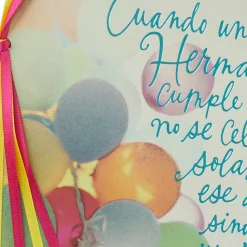 Cuando un
Herma
cumple
no se cel
sola
ese d
sin